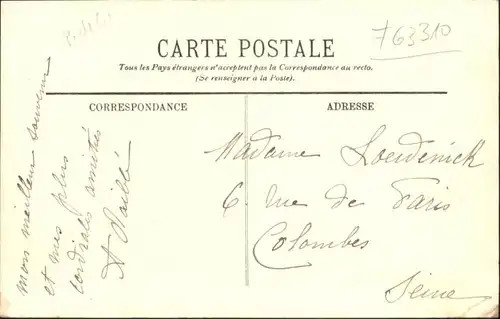 763310
CARTE POSTALE
Tous les Pays étrangers n'acceptent pas la Correspondance au recto.
(Se renseigner à la Poste).
CORRESPONDANCE
ADRESSE
mon meilleur souvenir
et mes plus
cordiales amitiés
A
Madame
6 Rue de Paris
Colombes
Seine